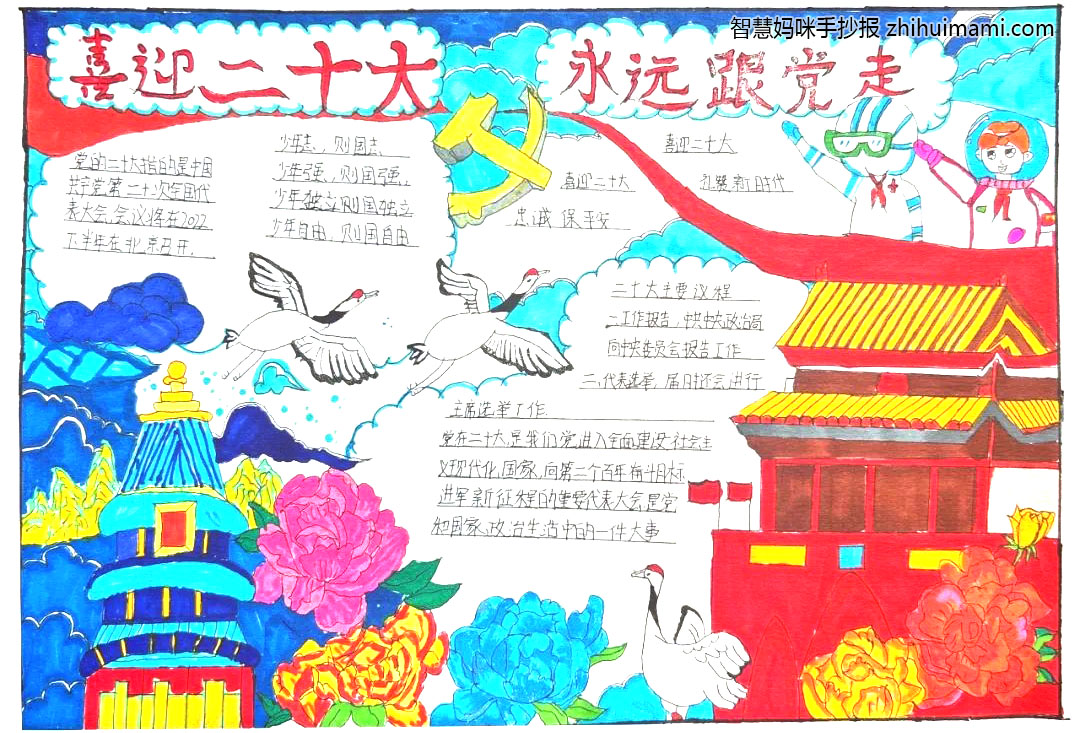 智慧妈咪手抄报 zhihuimami.com
喜迎二十大
永远跟党走
党的二十大指的是中国
共产党第二十次全国代
表大会,会议将在2022
下半年在北京召开.
少年志,则国志,
少年强,则国强,
少年独立则国独立
少年自由,则国自由
喜迎二十大
喜迎二十大
礼赞新时代
忠诚保平安
二十大主要议程
一工作报告,中共中央政治局
向中央委员会报告工作
二、代表选举,届时还会进行
主席选举工作.
党在二十大,是我们党进入全面建设社会主
义现代化国家,向第二个百年奋斗目标
进军新征程的重要代表大会,是党
和国家政治生活中的一件大事